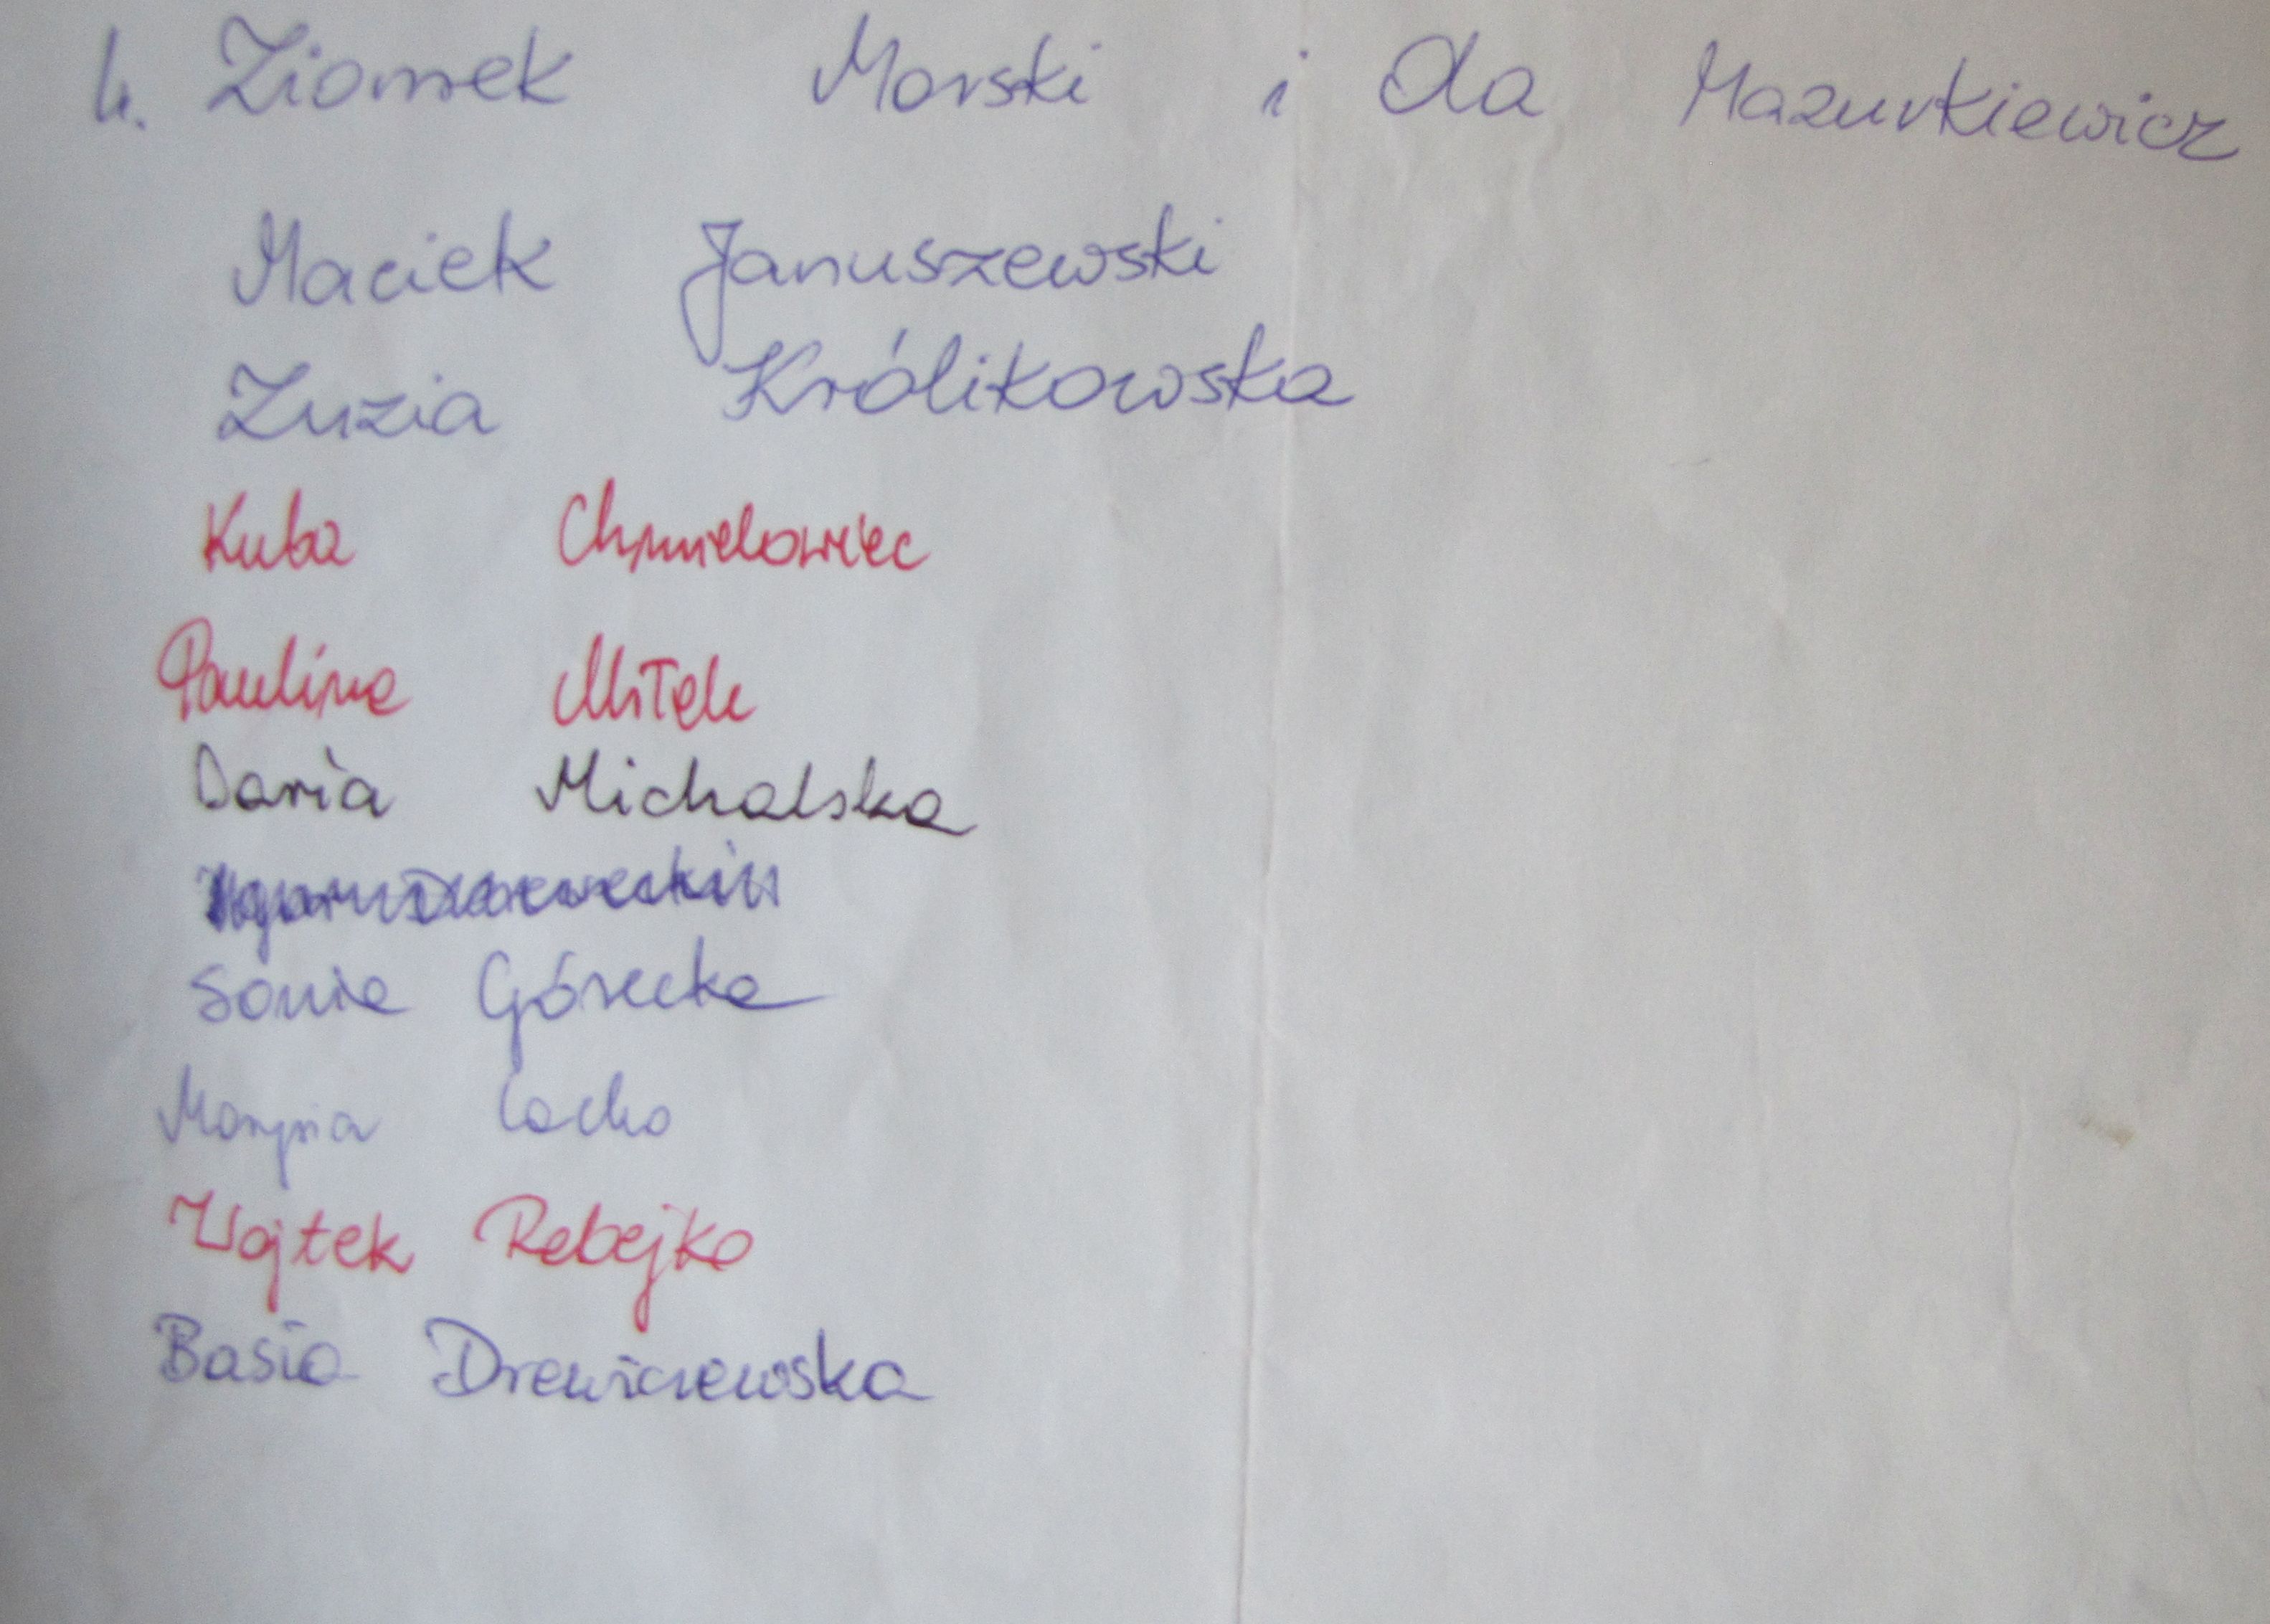 4. Ziomek Morski i Ola Mazurkiewicz
Maciek Januszewski
Zuzia Królikowska
Kuba Chmielowiec
Paulina Miłek
Daria Michalska
Sonia Górecka
Marysia Cocho
Wojtek Rebejko
Basia Drewiczewska